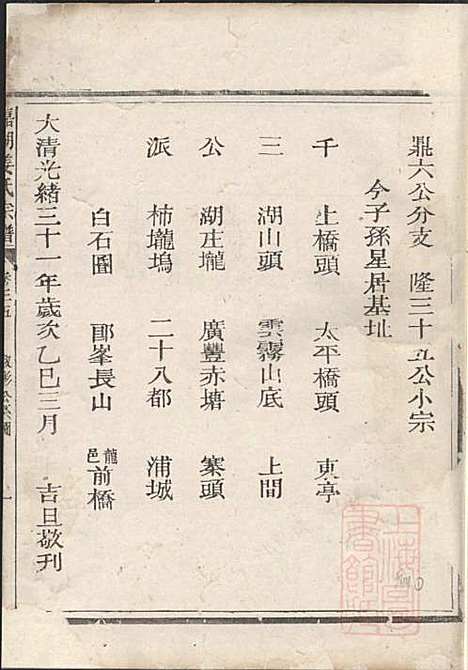 鼎六公分支　隆三十五公小宗
今子孫星居基址
千　上橋頭　太平橋頭　東亭
三　湖山頭　雲霧山底　上間
公　湖庄壠　廣豐赤塘　寨頭
派　柿壠塢　二十八都　浦城
白石圕　郞峯長山　龍邑前橋
大清光緒三十一年歲次乙巳三月　吉旦敬刊
氏宗譜
上海
書館